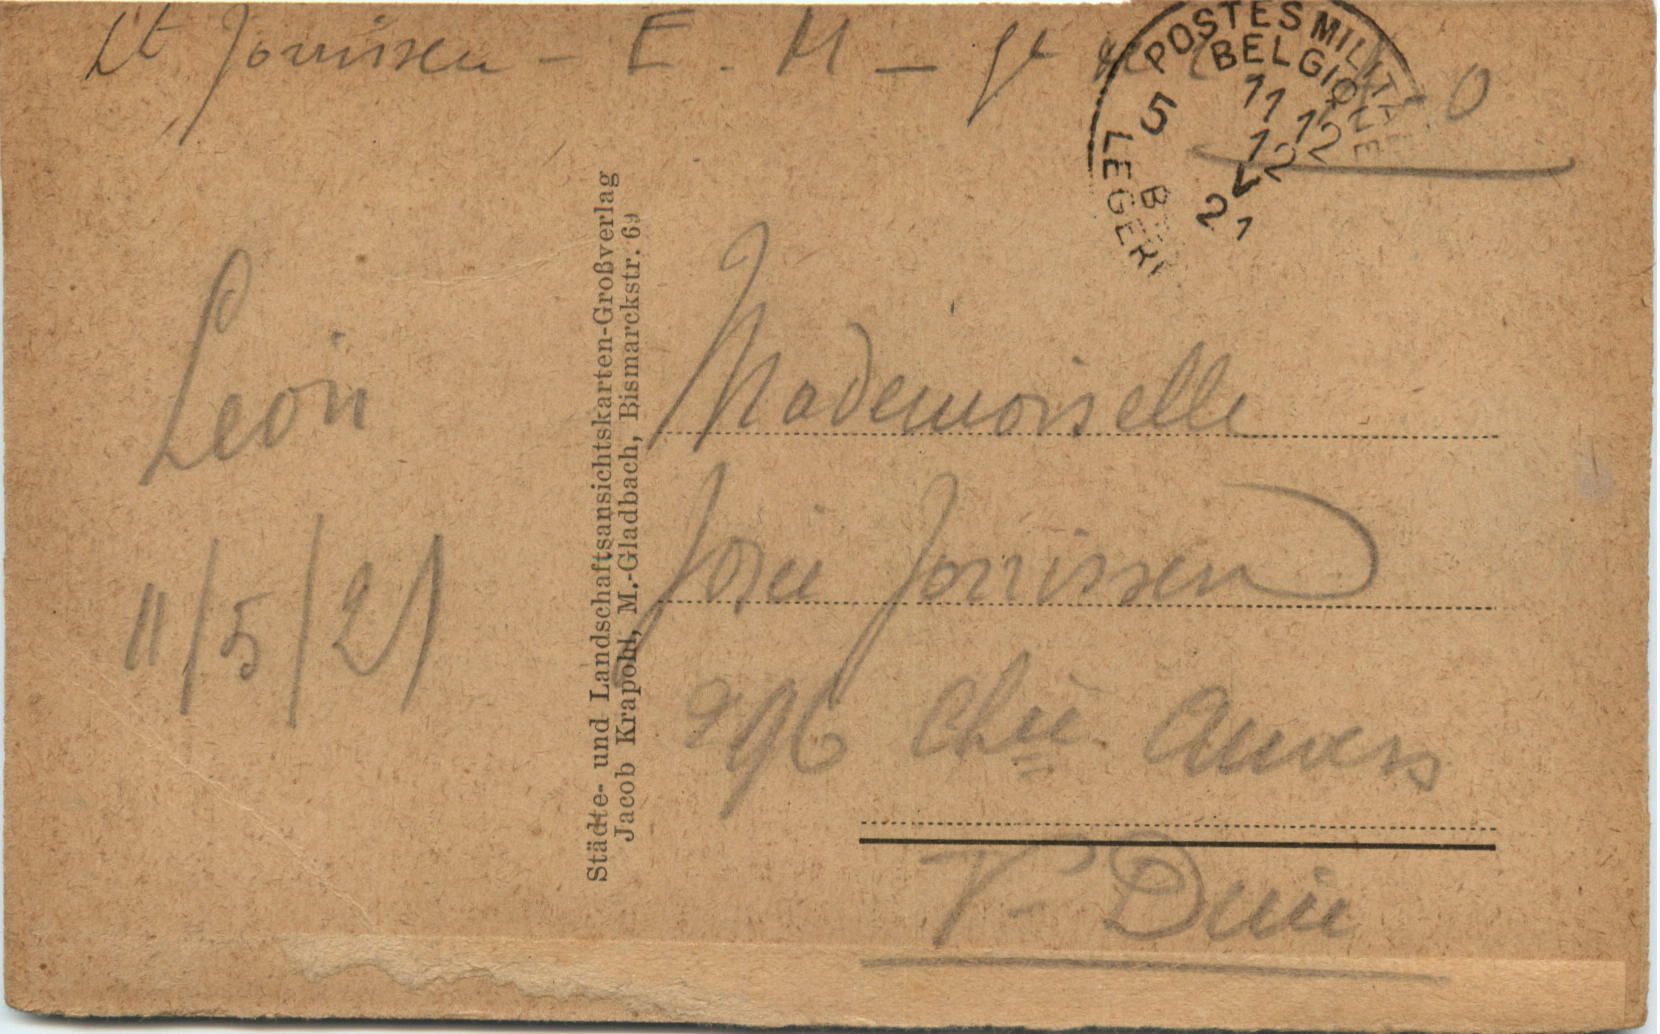 Lt Jorrissen - E. M -
POSTES MILITAI
BELGIQUE
5
11 12
12
V
21
LEGERP
Léon
11/5/21
Städte- und Landschaftsansichtskarten-Großverlag
Jacob Krapohl, M.-Gladbach, Bismarckstr. 69
Mademoiselle
Josée Jorrissen
296 Chée Anvers
Vx Dieu